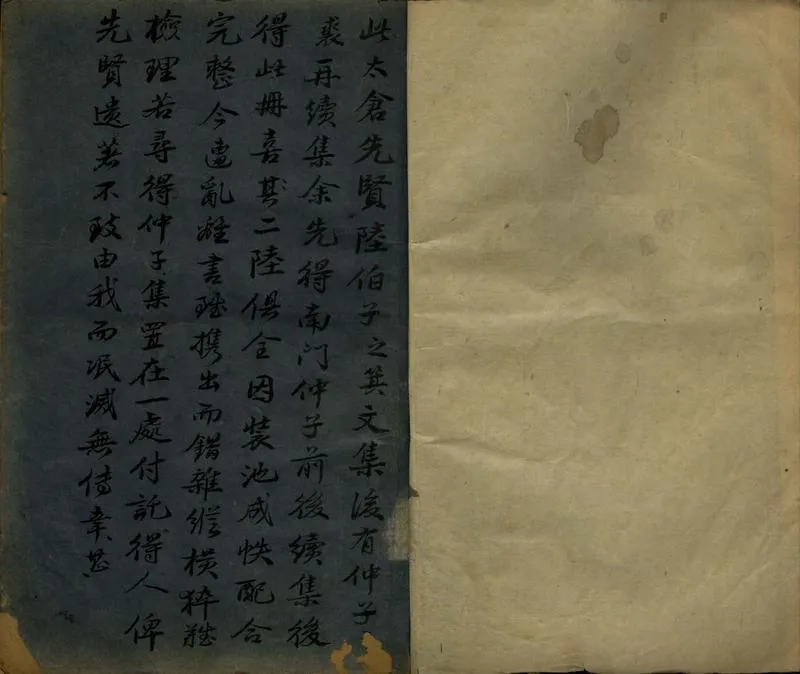 此太倉先賢陸伯子之箕文集後有仲子
裘再續集余先得南門仲子前後續集後
得此冊喜其二陸俱全因裝池成帙配合
完整今遭亂離書雖携出而錯雜縱橫猝難
檢理若尋得仲子集置在一處付託得人俾
先賢遺著不致由我而泯滅無傳幸甚